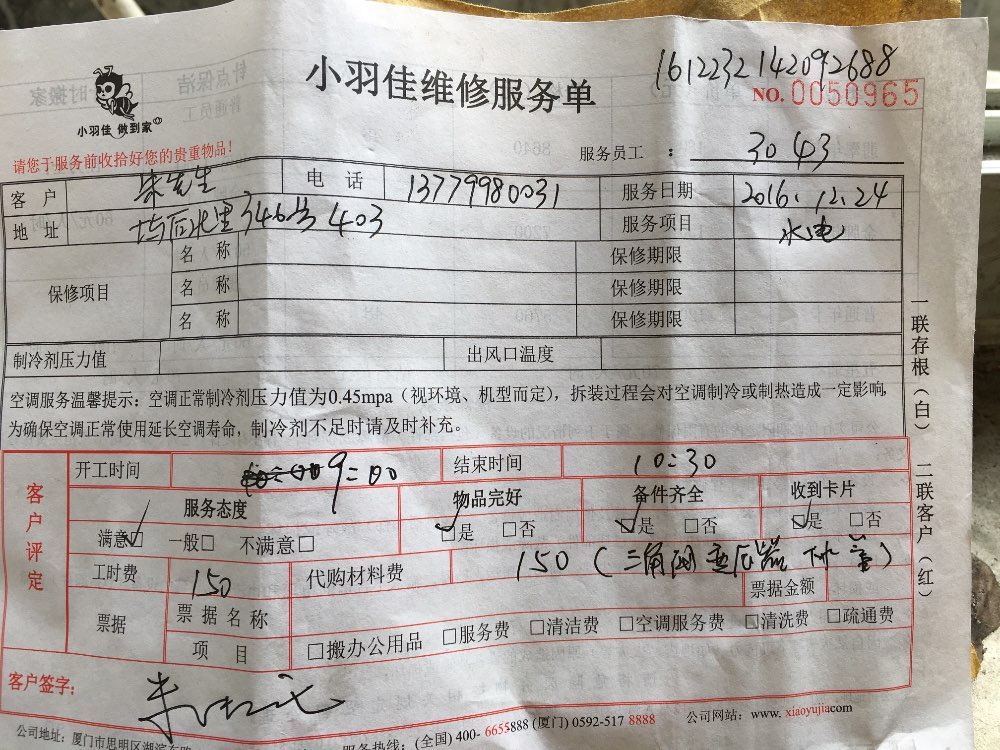 小羽佳维修服务单
1612232142092688
NO. 0050965
小羽佳 做到家
请您于服务前收拾好您的贵重物品!
服务员工 : 3043
客户 朱先生 电话 13779980031 服务日期 2016.12.24
地址 346号 403 服务项目 水电
保修项目 名称 保修期限
名称 保修期限
名称 保修期限
制冷剂压力值 出风口温度
空调服务温馨提示: 空调正常制冷剂压力值为0.45mpa(视环境、机型而定),拆装过程会对空调制冷或制热造成一定影响,
为确保空调正常使用延长空调寿命, 制冷剂不足时请及时补充。
一联存根(白) 二联客户(红)
客户评定
开工时间 9:00 结束时间 10:30
服务态度 物品完好 备件齐全 收到卡片
满意☑ 一般□ 不满意□ ☑是 □否 ☑是 □否 ☑是 □否
工时费 150 代购材料费 150 (三角阀
票据 票据名称 票据金额
项目 □搬办公用品 □服务费 □清洁费 □空调服务费 □清洗费 □疏通费
客户签字: 朱
公司地址: 厦门市思明区湖滨东路
服务热线: (全国) 400-6655888 (厦门) 0592-517 8888
公司网站: www. xiaoyujia.com